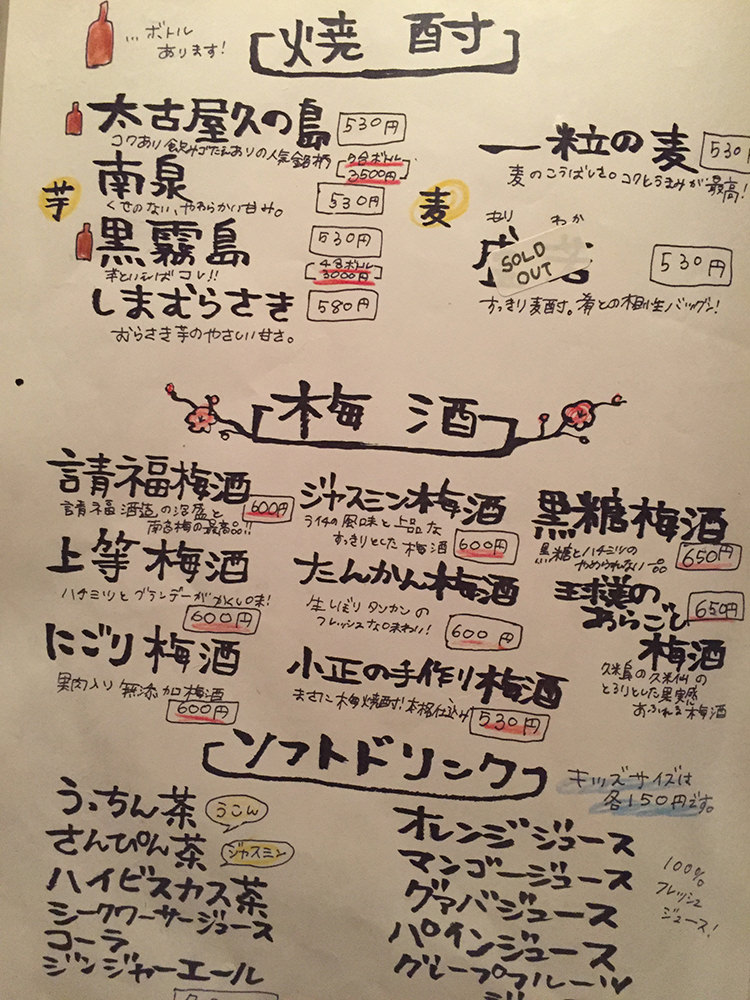 …ボトル
あります!
焼酎
芋
太古屋久の島 530円
コクあり飲みゴたえありの人気銘柄
ボトル
3500円
南泉 530円
くせのない、やわらかい甘み。
黒霧島 530円
芋といえばコレ!!
4合ボトル
3000円
しまむらさき 580円
むらさき芋のやさしい甘さ。
麦
一粒の麦 530
麦のこうばしさ。コクとうまみが最高!
もり わか
SOLD
OUT
530円
すっきり麦酎。肴との相性バツグン!
梅酒
請福梅酒
請福酒造の泡盛と
南高梅の最高品!!
600円
上等梅酒
ハチミツとブランデーがかくし味!
600円
にごり梅酒
果肉入り無添加梅酒
600円
ジャスミン梅酒
ライチの風味と上品な
すっきりとした梅酒
600円
たんかん梅酒
生しぼりタンカンの
フレッシュな味わい!
600円
小正の手作り梅酒
まさに梅焼酎!本格仕込み
530円
黒糖梅酒
黒糖とハチミツの
やめられない一品
650円
球美の
あらごし
梅酒
650円
久米島の久米仙の
とろりとした果実感
あふれる梅酒
ソフトドリンク
キッズサイズは
各150円です。
うっちん茶 うこん
さんぴん茶 ジャスミン
ハイビスカス茶
シークワーサージュース
コーラ
ジンジャーエール
オレンジジュース
マンゴージュース
グァバジュース
パインジュース
グレープフルーツ
100%
フレッシュ
ジュース!